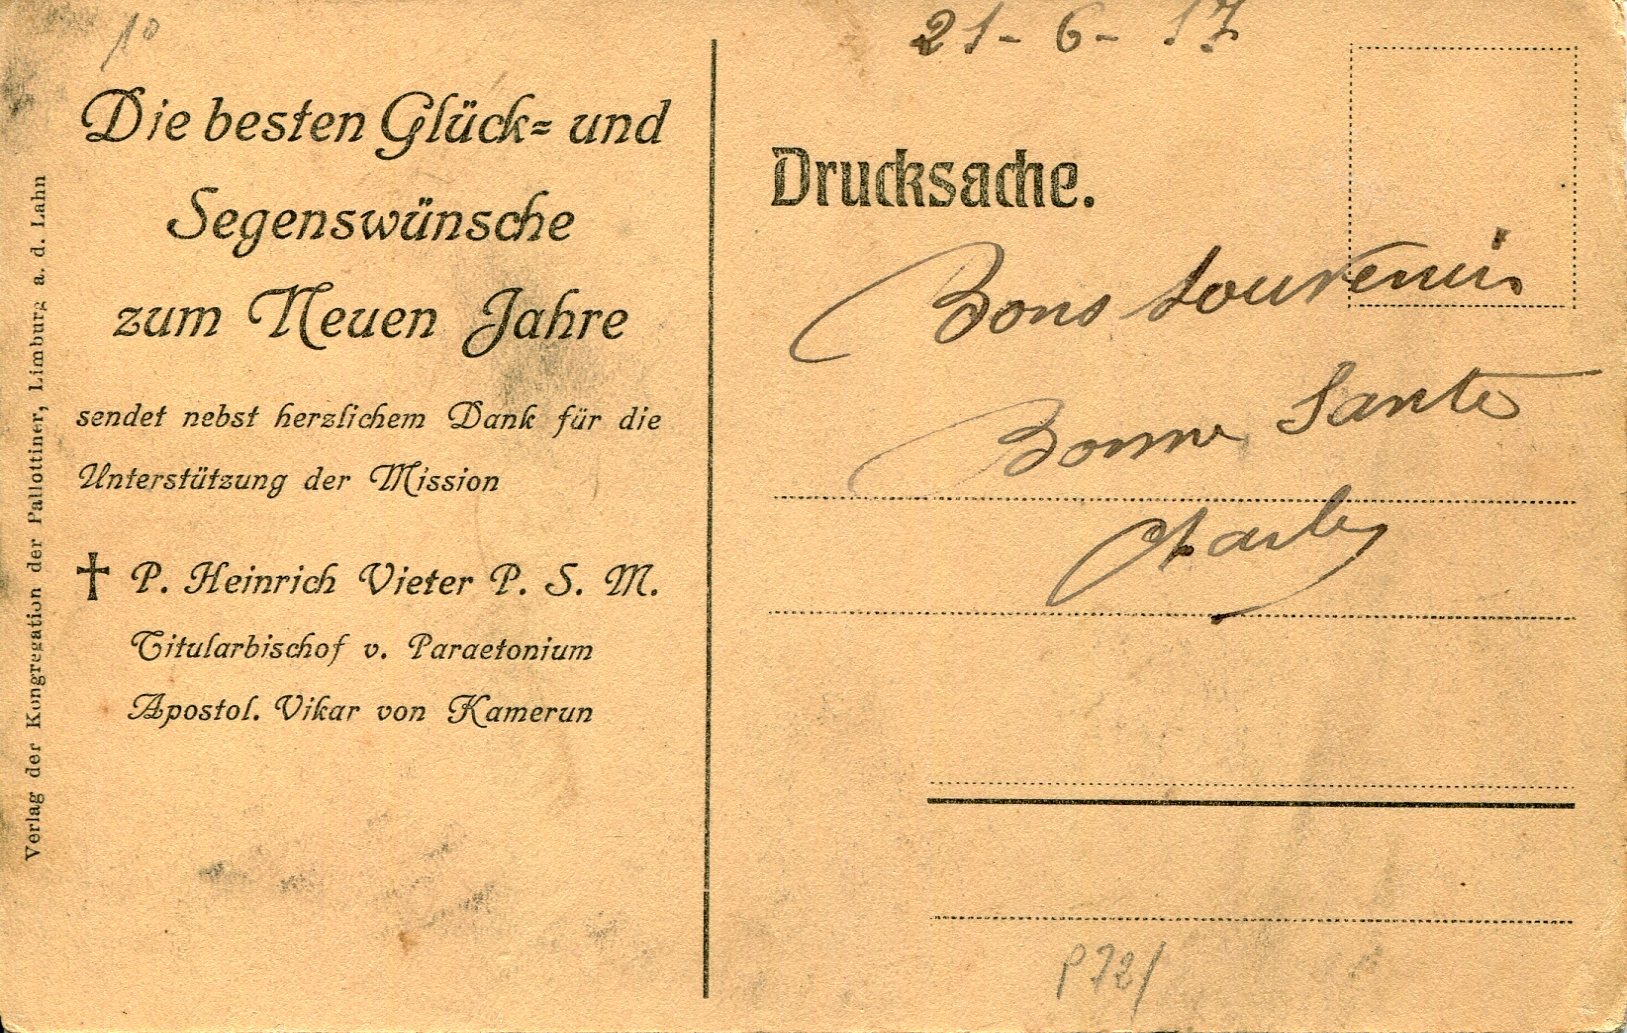 10
Die besten Glück= und
Segenswünsche
zum Neuen Jahre
sendet nebst herzlichem Dank für die
Unterstützung der Mission
† P. Heinrich Vieter P. S. M.
Titularbischof v. Paraetonium
Apostol. Vikar von Kamerun
Verlag der Kongregation der Pallottiner, Limburg a. d. Lahn
21-6-17
Drucksache.
Bons Souvenir
Bonne Santé
Charles
P72/